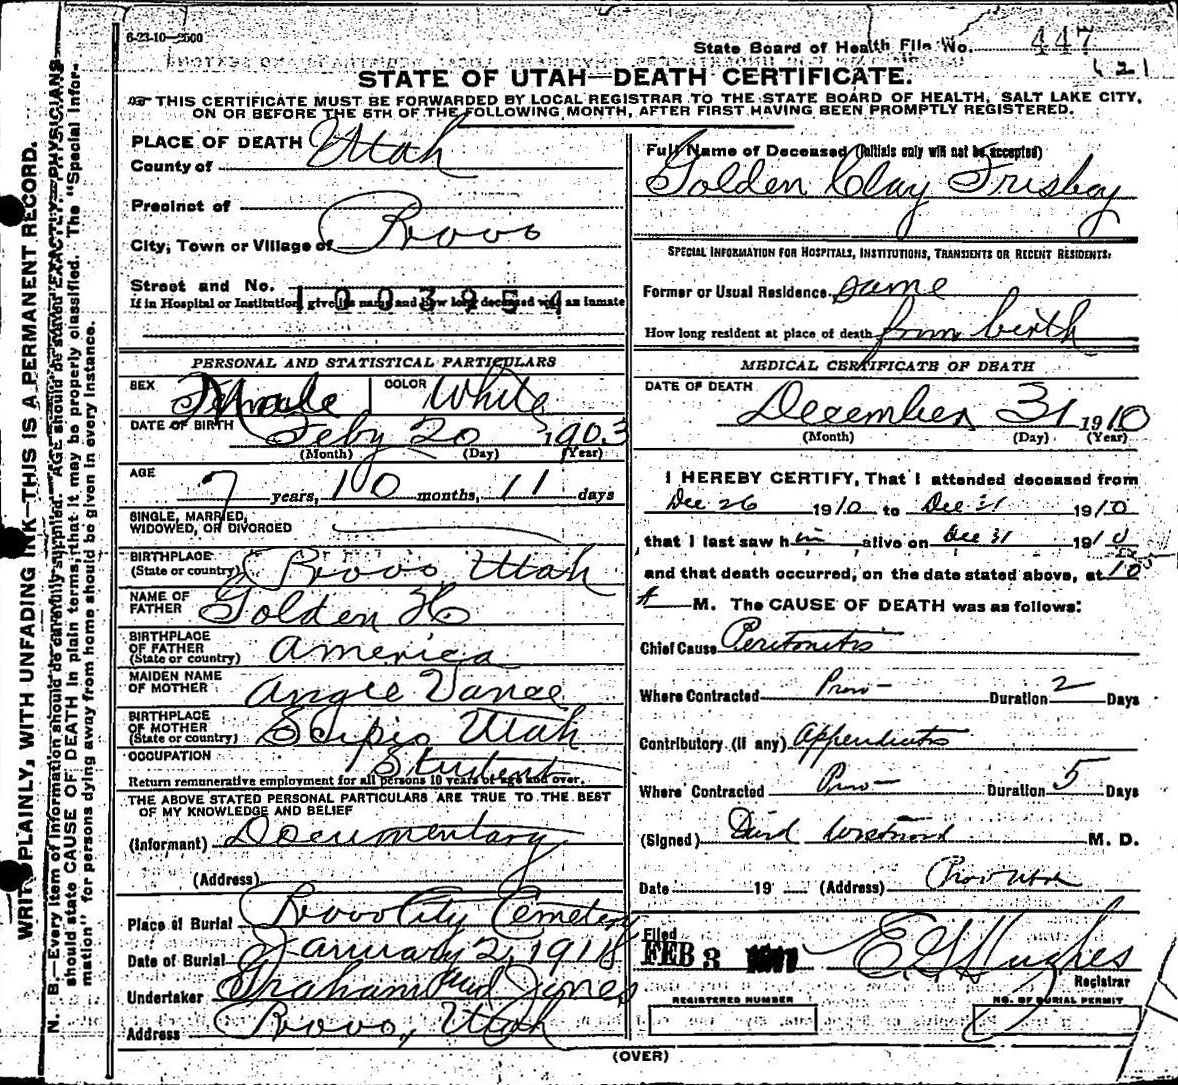 6-23-10—2500
State Board of Health File No. 447
(2)
STATE OF UTAH—DEATH CERTIFICATE.
THIS CERTIFICATE MUST BE FORWARDED BY LOCAL REGISTRAR TO THE STATE BOARD OF HEALTH, SALT LAKE CITY,
ON OR BEFORE THE 5TH OF THE FOLLOWING MONTH, AFTER FIRST HAVING BEEN PROMPTLY REGISTERED.
WRITE PLAINLY, WITH UNFADING INK—THIS IS A PERMANENT RECORD.
N. B.—Every item of information should be carefully supplied. AGE should be stated EXACTLY. PHYSICIANS
should state CAUSE OF DEATH in plain terms, that it may be properly classified. The "Special Infor-
mation" for persons dying away from home should be given in every instance.
PLACE OF DEATH
County of Utah
Precinct of
City, Town or Village of Provo
Street and No.
1003954
If in Hospital or Institution, give its name and how long deceased was an inmate
PERSONAL AND STATISTICAL PARTICULARS
SEX Male COLOR White
DATE OF BIRTH Feby 20 1903
(Month) (Day) (Year)
AGE 7 years, 10 months, 11 days
SINGLE, MARRIED,
WIDOWED, OR DIVORCED
BIRTHPLACE
(State or country) Provo, Utah
NAME OF
FATHER Golden H
BIRTHPLACE
OF FATHER
(State or country) America
MAIDEN NAME
OF MOTHER Angie Vance
BIRTHPLACE
OF MOTHER
(State or country) Scipio Utah
OCCUPATION Student
Return remunerative employment for all persons 10 years of age and over.
THE ABOVE STATED PERSONAL PARTICULARS ARE TRUE TO THE BEST
OF MY KNOWLEDGE AND BELIEF
(Informant) Documentary
(Address)
Place of Burial Provo City Cemetery
Date of Burial January 2, 1911
Undertaker Graham and Jones
Address Provo, Utah
Full Name of Deceased (Initials only will not be accepted)
Golden Clay Frisby
SPECIAL INFORMATION FOR HOSPITALS, INSTITUTIONS, TRANSIENTS OR RECENT RESIDENTS:
Former or Usual Residence. same
How long resident at place of death from birth
MEDICAL CERTIFICATE OF DEATH
DATE OF DEATH
December 31 1910
(Month) (Day) (Year)
I HEREBY CERTIFY, That I attended deceased from
Dec 26 1910 to Dec 31 1910
that I last saw him alive on Dec 31 1910
and that death occurred, on the date stated above, at 10
A M. The CAUSE OF DEATH was as follows:
Chief Cause Peritonitis
Where Contracted Prov— Duration 2 Days
Contributory (if any) Appendicitis
Where Contracted Prov— Duration 5 Days
(Signed) M. D.
Date 19 (Address) Provo Utah
Filed
FEB 3 1911 E G Hughes
Registrar
REGISTERED NUMBER
NO. OF BURIAL PERMIT
(OVER)